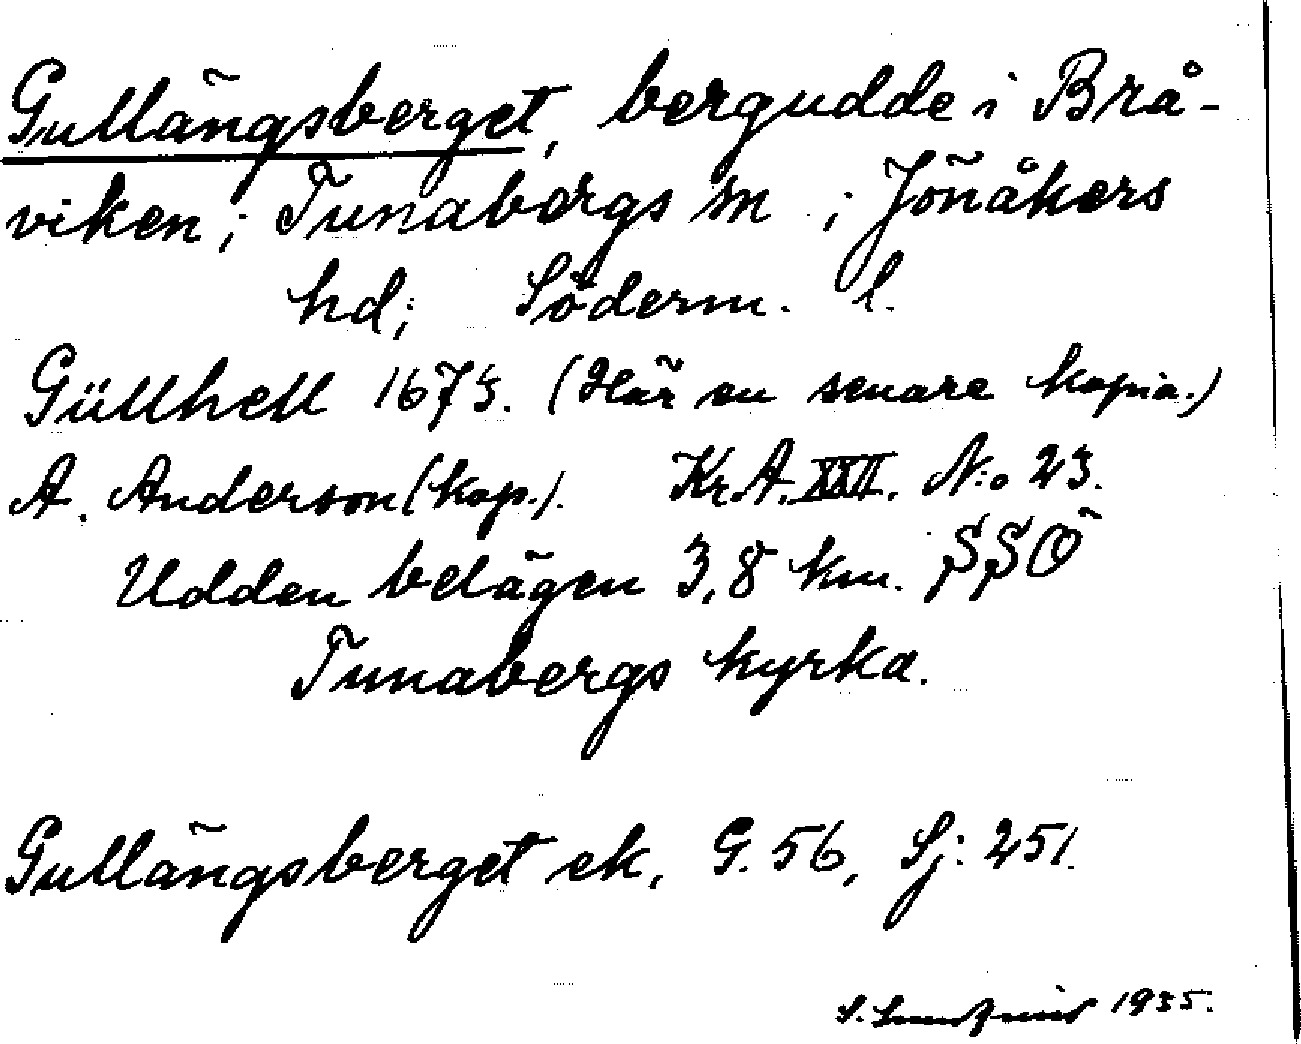 Gullängsberget, bergudde i Brå-
viken; Tunabergs sn ; Jönåkers
hd; Söderm. l.
Güllhell 1673. (Här en senare kopia.)
A. Anderson (kop.). Kr.A. XXII. N:o 23.
Udden belägen 3,8 km. SSO
Tunabergs kyrka.
Gullängsberget ek, G. 56, Sj: 251.
S. 1935.